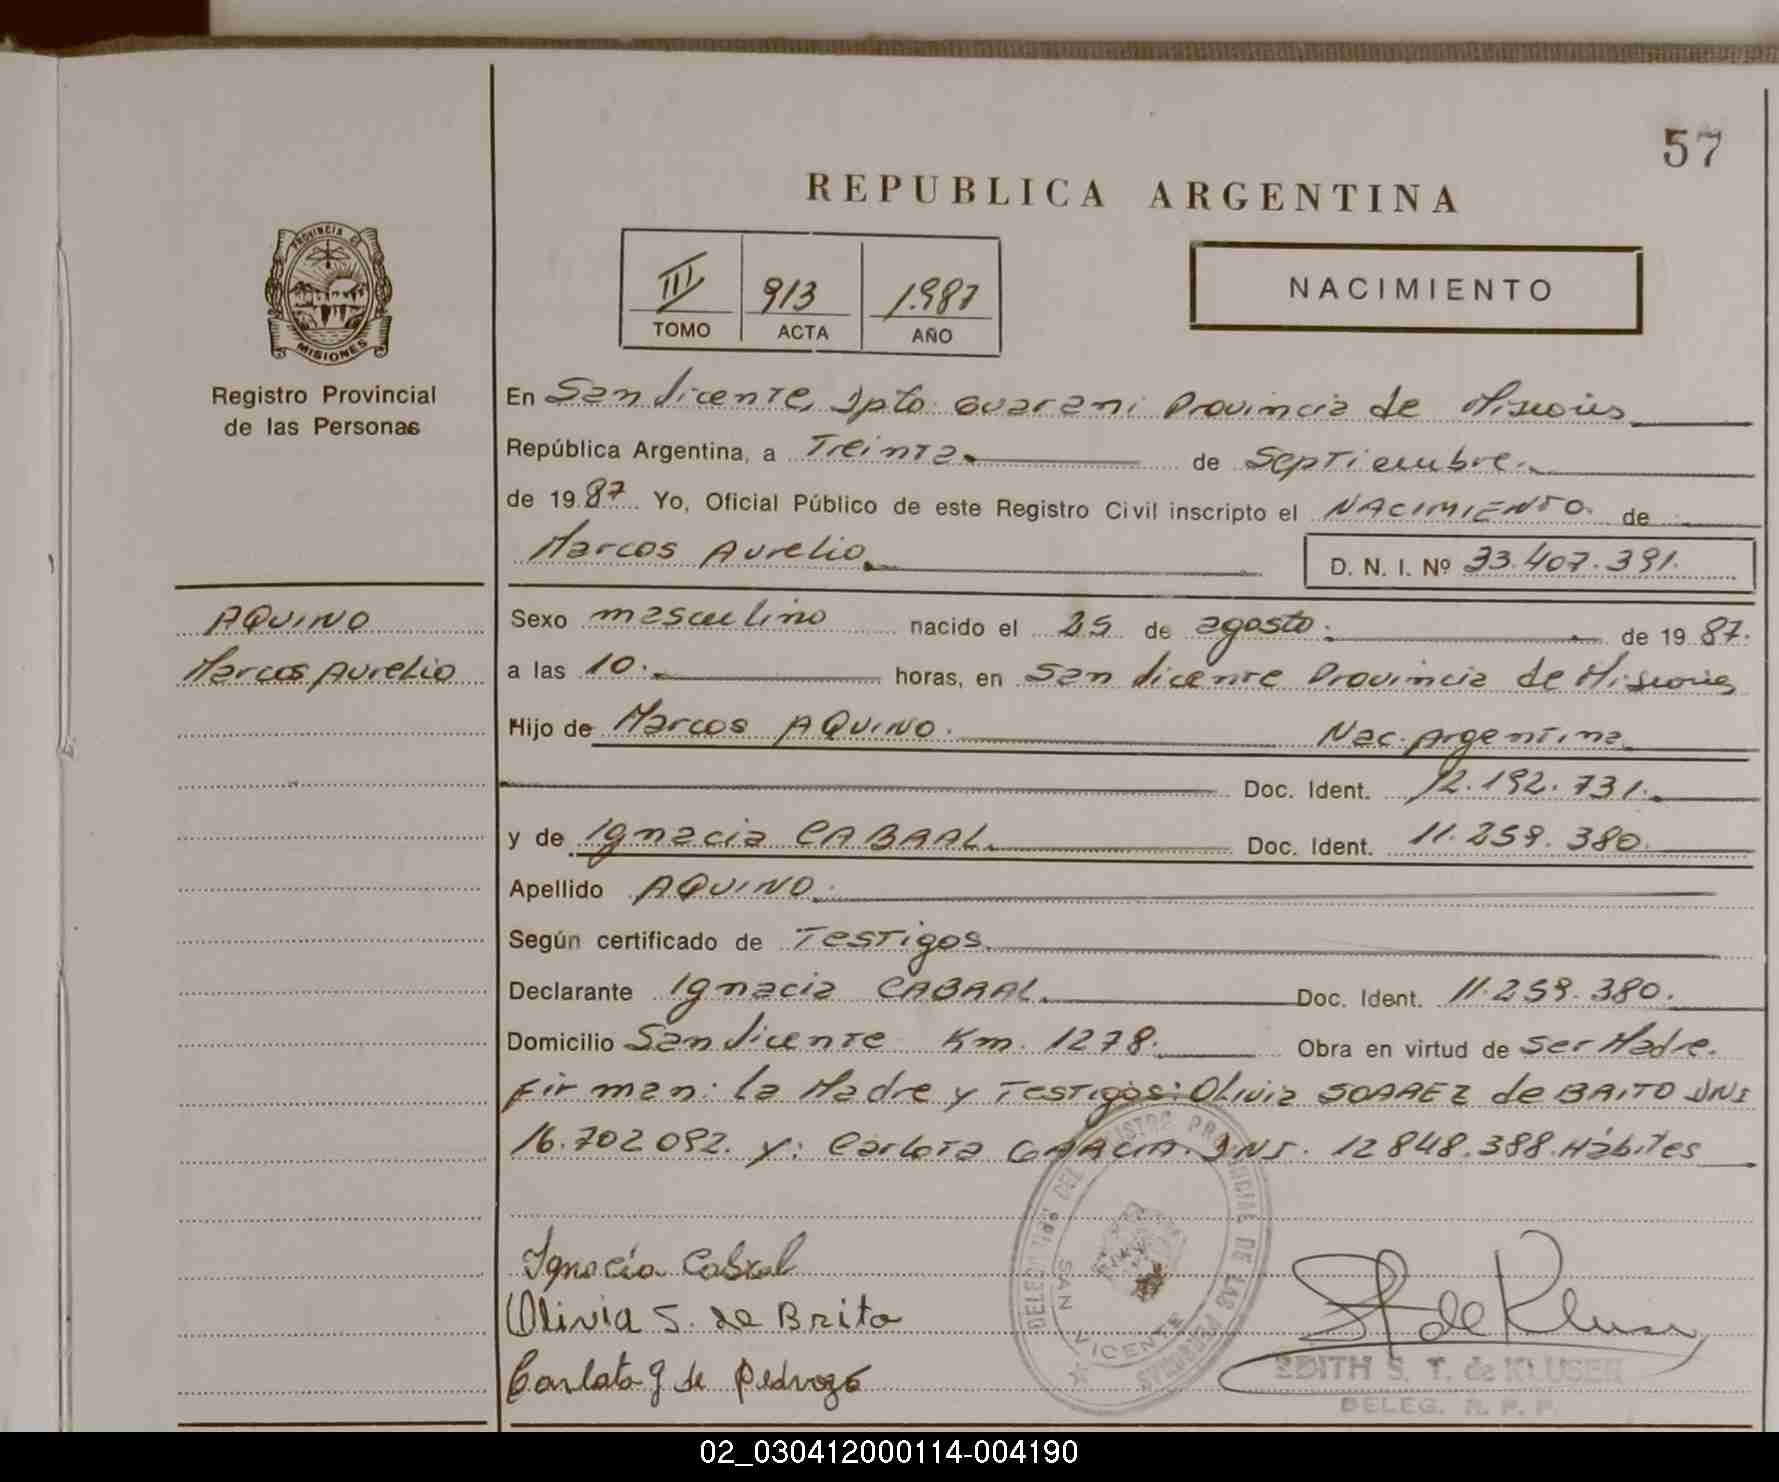 57
REPUBLICA ARGENTINA
III 913 1.987
TOMO ACTA AÑO
NACIMIENTO
PROVINCIA DE
MISIONES
Registro Provincial
de las Personas
En San Vicente, Dpto. Guarani Provincia de Misiones
República Argentina, a Treinta de Septiembre.
de 19 87 Yo, Oficial Público de este Registro Civil inscripto el NACIMIENTO. de
Marcos Aurelio
D. N. I. Nº 33.407.391.
AQUINO
Marcos Aurelio
Sexo masculino nacido el 25 de agosto. de 19 87.
a las 10. horas, en San Vicente Provincia de Misiones
Hijo de Marcos AQUINO. Nac. Argentina
Doc. Ident. 12.192.731.
y de Ignacia CABRAL. Doc. Ident. 11.259.380.
Apellido AQUINO.
Según certificado de Testigos
Declarante Ignacia CABRAL. Doc. Ident. 11.259.380.
Domicilio San Vicente Km. 1278. Obra en virtud de ser Madre.
Firman: la Madre y Testigos: Olivia SOAREZ de BRITO DNI
16.702.092. y: Carlota GARCIA. DNI. 12.848.388. Hábiles
Ignacia Cabral
Olivia S. de Brito
Carlota g de Pedrozo
DELEGACION DEL REGISTRO PROVINCIAL DE LAS PERSONAS
SAN VICENTE
EDITH S. T. de KLUSER
DELEG. R. P. P.
02_030412000114-004190